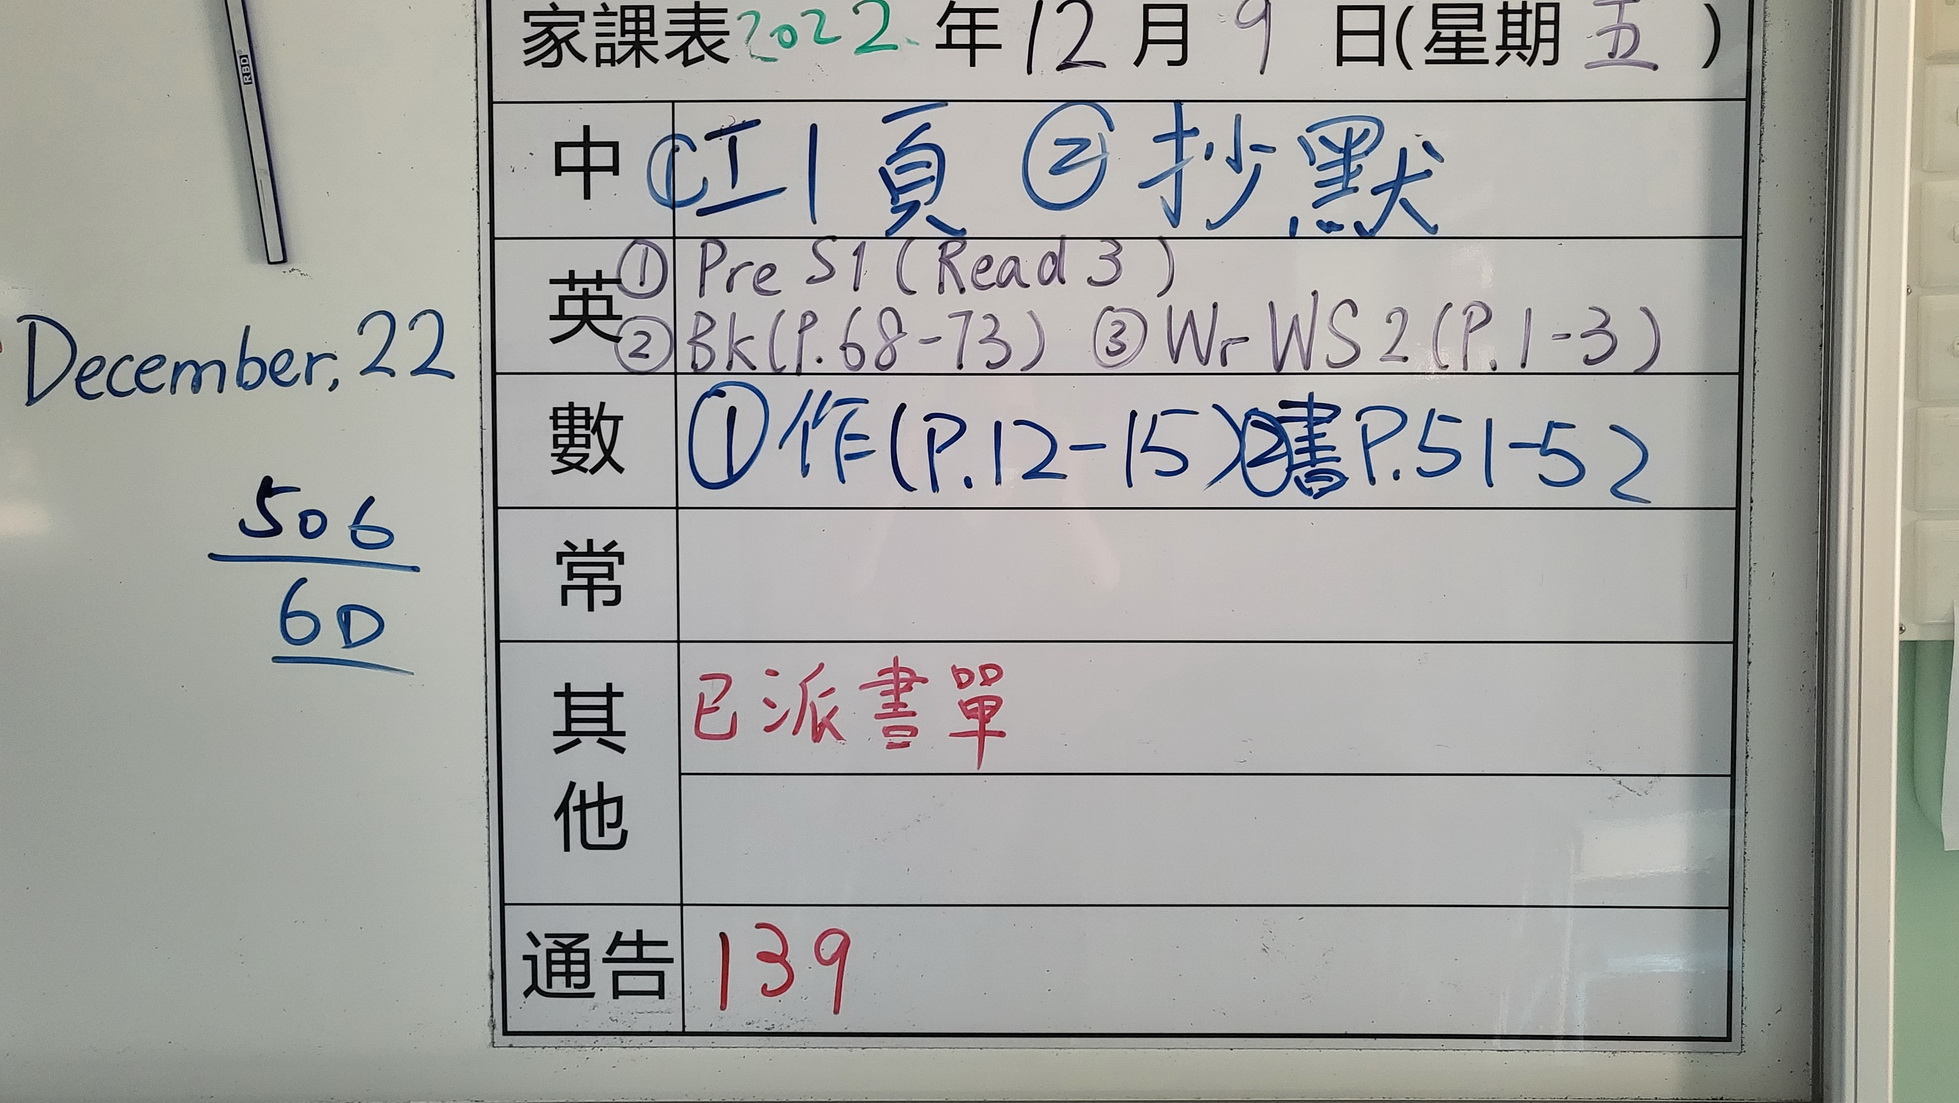 家課表2022年12月9日(星期五)
中 ①工1頁 ②抄默
英 ① Pre S1 (Read 3)
② Bk(P.68-73) ③ Wr WS 2 (P.1-3)
數 ①作(P.12-15)②書P.51-52
常
其他 已派書單
通告 139
December, 22
506
6D
RBD